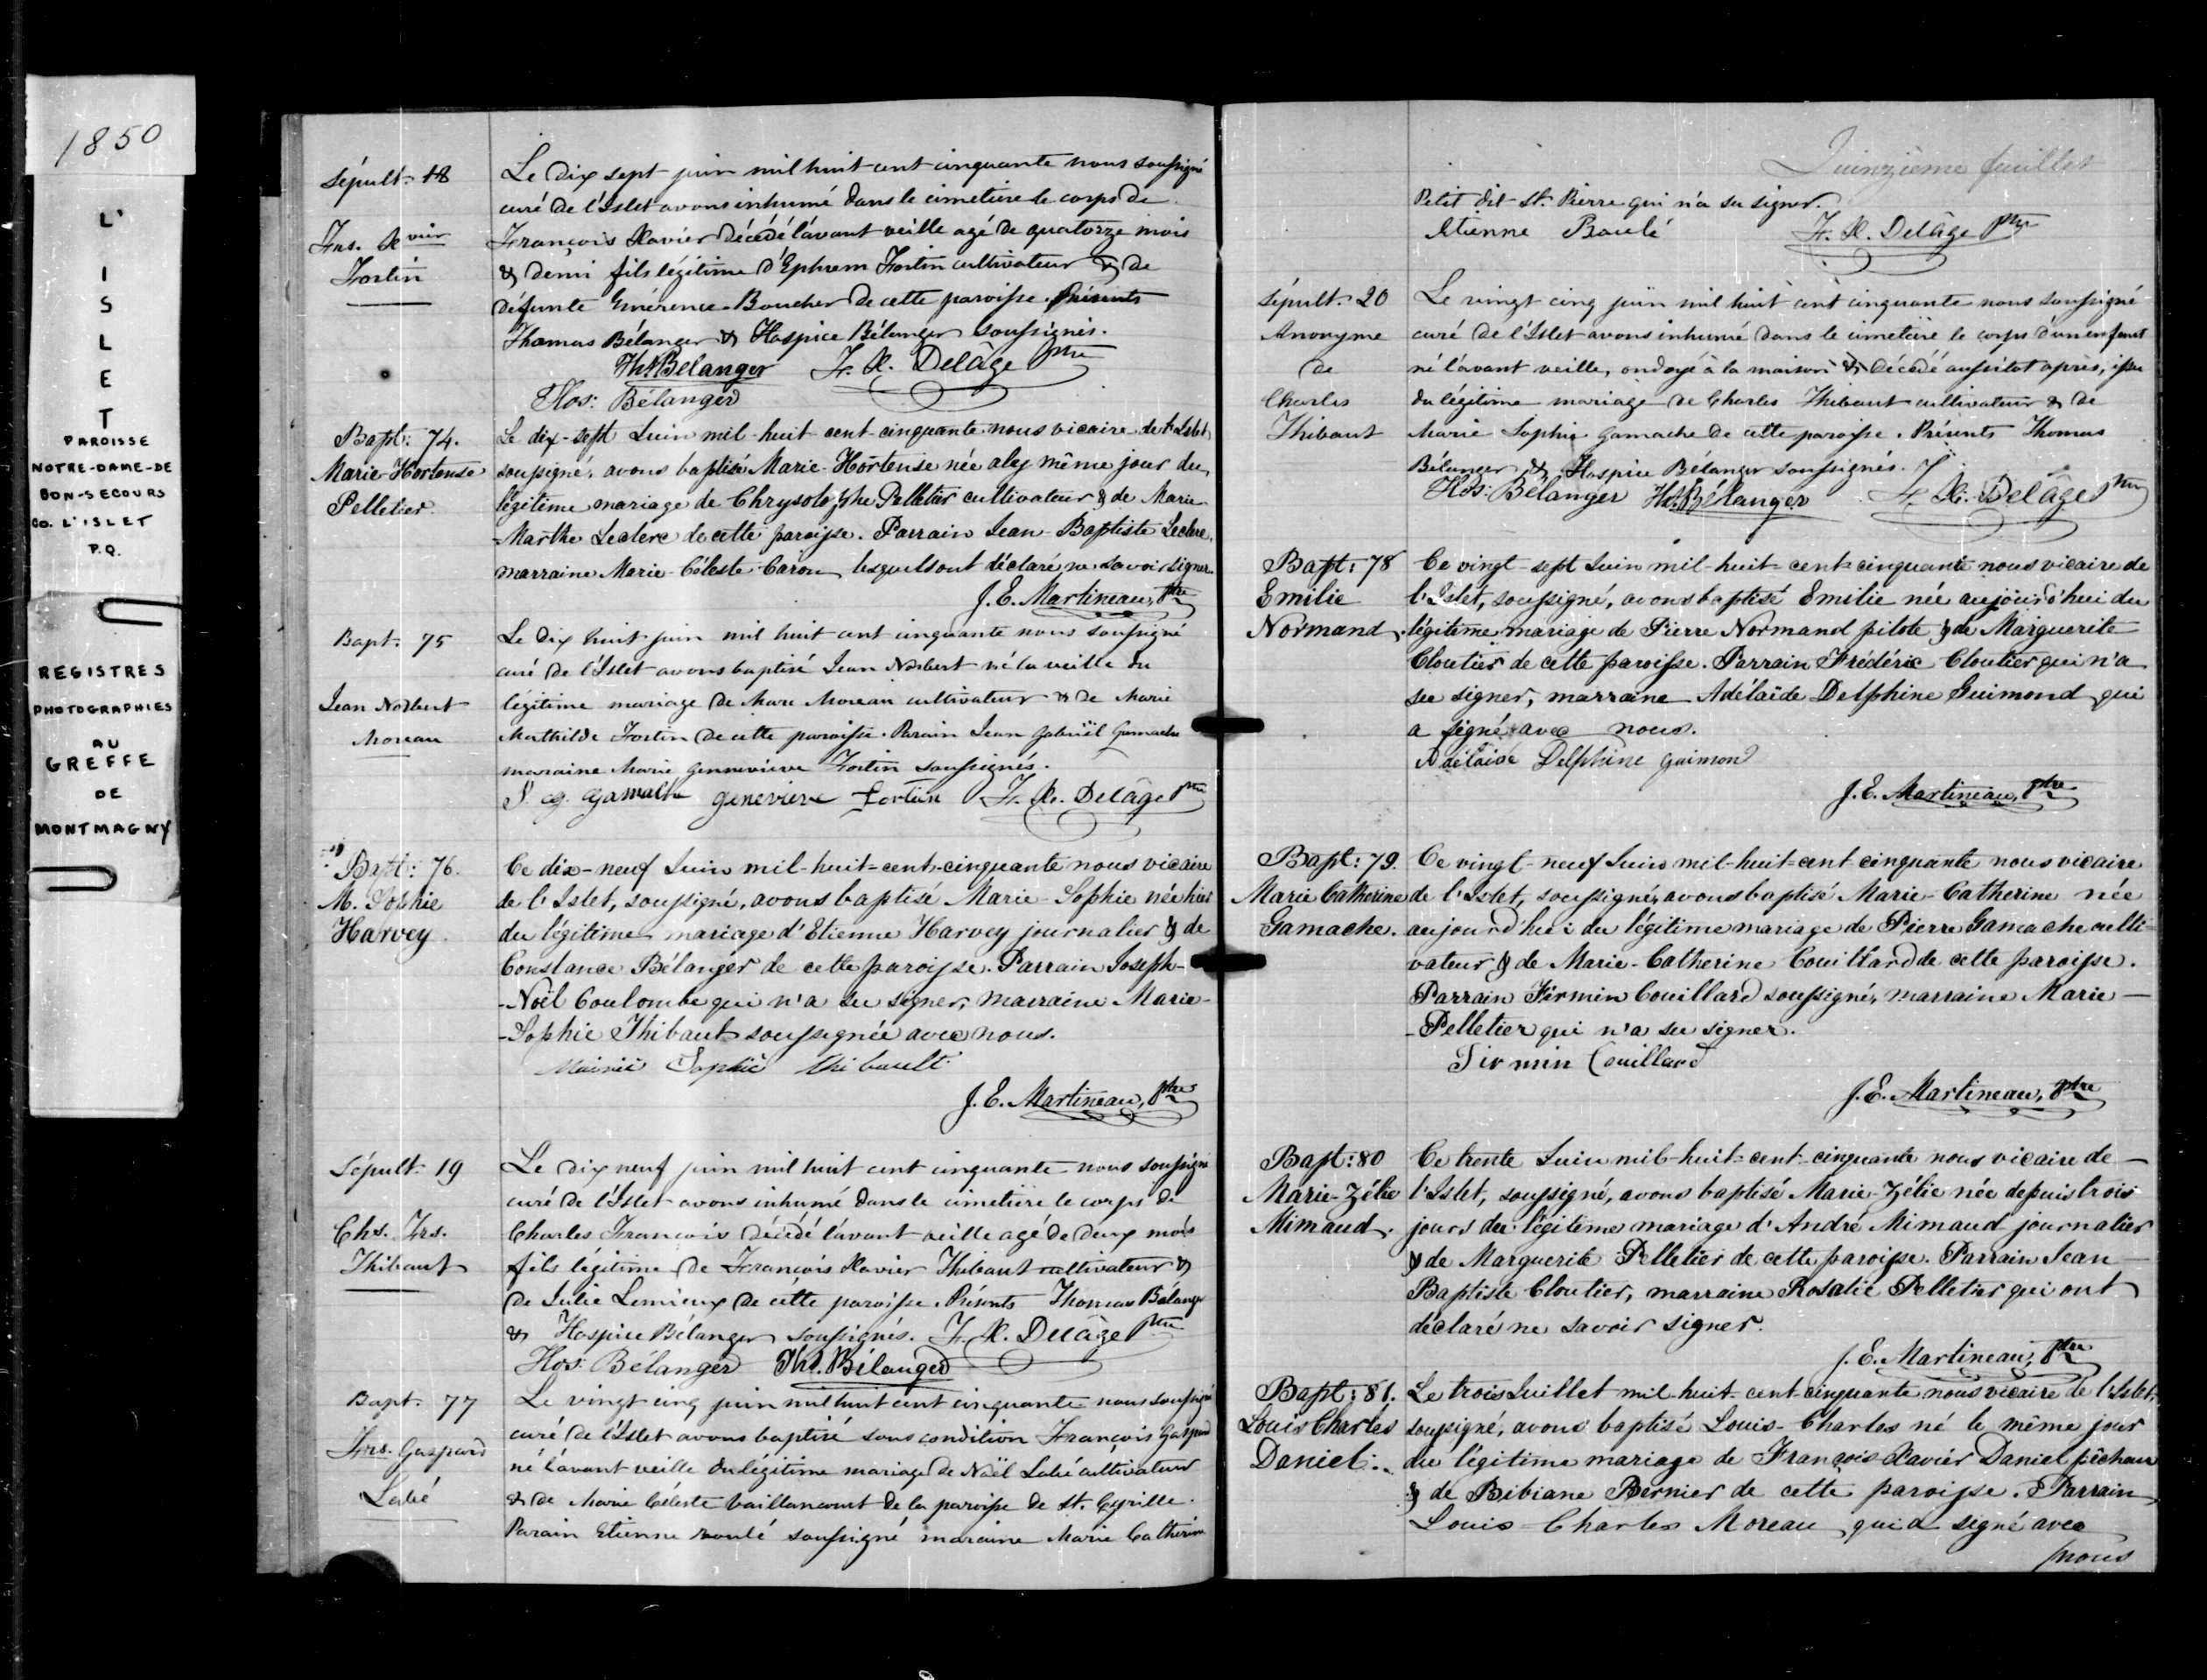 1850
L'
I
S
L
E
T
PAROISSE
NOTRE-DAME-DE
BON-SECOURS
CO. L'ISLET
P.Q.
REGISTRES
PHOTOGRAPHIES
AU
GREFFE
DE
MONTMAGNY
Sépult. 18
Frs. Xvier
Fortin
Le dix sept juin mil huit cent cinquante nous soussigné
curé de l'Islet avons inhumé dans le cimetière le corps de
François Xavier décédé l'avant veille agé de quatorze mois
& demi fils légitime d'Ephrem Fortin cultivateur & de
défunte Emérence Boucher de cette paroisse. Présents
Thomas Bélanger & Hospice Bélanger soussignés.
Ths Belanger F. X. Delâge Ptre
Hos: Bélanger
Bapt: 74.
Marie-Hortense
Pelletier
Le dix-sept Juin mil-huit-cent-cinquante nous vicaire de l'Islet,
soussigné, avons baptisé Marie-Hortense née le même jour du
légitime mariage de Chrysologhe Pelletier cultivateur & de Marie
-Marthe Leclerc de cette paroisse. Parrain Jean-Baptiste Leclerc,
marraine Marie-Céleste Caron lesquels ont déclaré ne savoir signer.
J. E. Martineau, Ptre
Bapt. 75
Jean Norbert
Moreau
Le dix huit juin mil huit cent cinquante nous soussigné
curé de l'Islet avons baptisé Jean Norbert né la veille du
légitime mariage de Marc Moreau cultivateur & de Marie
Mathilde Fortin de cette paroisse. Parain Jean Gabriël Gamache
maraine Marie Genneviève Fortin soussignés.
J. G. Gamache genevieve fortin F. X. Delâge Ptre
Bapt: 76.
M. Sophie
Harvey
Ce dix-neuf Juin mil-huit-cent-cinquante nous vicaire
de l'Islet, soussigné, avons baptisé Marie-Sophie née hier
du légitime mariage d'Etienne Harvey journalier & de
Constance Bélanger de cette paroisse. Parrain Joseph-
-Noël Coulombe qui n'a su signer, marraine Marie-
-Sophie Thibaut soussignée avec nous.
Marie Sophie thibault
J. E. Martineau, Ptre
Sépult. 19
Chs. Frs.
Thibaut
Le dix neuf juin mil huit cent cinquante nous soussigné
curé de l'Islet avons inhumé dans le cimetière le corps de
Charles François décédé l'avant veille agé de deux mois
fils légitime de François Xavier Thibaut cultivateur &
de Julie Lemieux de cette paroisse. Présents Thomas Bélanger
& Hospice Bélanger soussignés. F. X. Delâge Ptre
Hos: Bélanger Ths. Bélanger
Bapt. 77
Frs. Gaspard
Labé
Le vingt cinq juin mil huit cent cinquante nous soussigné
curé de l'Islet avons baptisé sous condition François Gaspard
né l'avant veille du légitime mariage de Noël Labé cultivateur
& de Marie Céleste Vaillancourt de la paroisse de St. Cyrille.
Parain Etienne Boulé soussigné maraine Marie Catherine
Quinzième feuillet
Petit dit St. Pierre qui n'a su signer.
Etienne Boulé F. X. Delâge Ptre
Sépult. 20
Anonyme
de
Charles
Thibaut
Le vingt cinq juin mil huit cent cinquante nous soussigné
curé de l'Islet avons inhumé dans le cimetière le corps d'un enfant
né l'avant veille, ondoyé à la maison & décédé aussitot après, issu
du légitime mariage de Charles Thibaut cultivateur & de
Marie Sophie Gamache de cette paroisse. Présents Thomas
Bélanger & Hospice Bélanger soussignés.
Hos: Bélanger Ths. Bélanger F. X. Delâge Ptre
Bapt: 78
Emilie
Normand.
Ce vingt-sept Juin mil-huit-cent-cinquante nous vicaire de
l'Islet, soussigné, avons baptisé Emilie née aujourd'hui du
légitime mariage de Pierre Normand pilote & de Marguerite
Cloutier de cette paroisse. Parrain Frédéric Cloutier qui n'a
su signer, marraine Adélaïde Delphine Guimond qui
a signé avec nous.
Adélaïde Delphine guimond
J. E. Martineau, Ptre
Bapt: 79.
Marie Catherine
Gamache.
Ce vingt-neuf Juin mil-huit-cent cinquante nous vicaire
de l'Islet, soussigné, avons baptisé Marie-Catherine née
aujourd'hui du légitime mariage de Pierre Gamache culti-
vateur & de Marie-Catherine Couillard de cette paroisse.
Parrain Firmin Couillard soussigné, marraine Marie
-Pelletier qui n'a su signer.
Firmin Couillard
J. E. Martineau, Ptre
Bapt: 80
Marie-Zélie
Mimaud.
Ce trente Juin mil-huit-cent-cinquante nous vicaire de
l'Islet, soussigné, avons baptisé Marie-Zélie née depuis trois
jours du légitime mariage d'André Mimaud journalier
& de Marguerite Pelletier de cette paroisse. Parrain Jean
Baptiste Cloutier, marraine Rosalie Pelletier qui ont
déclaré ne savoir signer.
J. E. Martineau, Ptre
Bapt: 81.
Louis Charles
Daniel.
Le trois Juillet mil-huit-cent-cinquante nous vicaire de l'Islet,
soussigné, avons baptisé Louis-Charles né le même jour
du légitime mariage de François-Xavier Daniel pêcheur
& de Bibiane Bernier de cette paroisse. Parrain
Louis-Charles Moreau qui a signé avec
nous